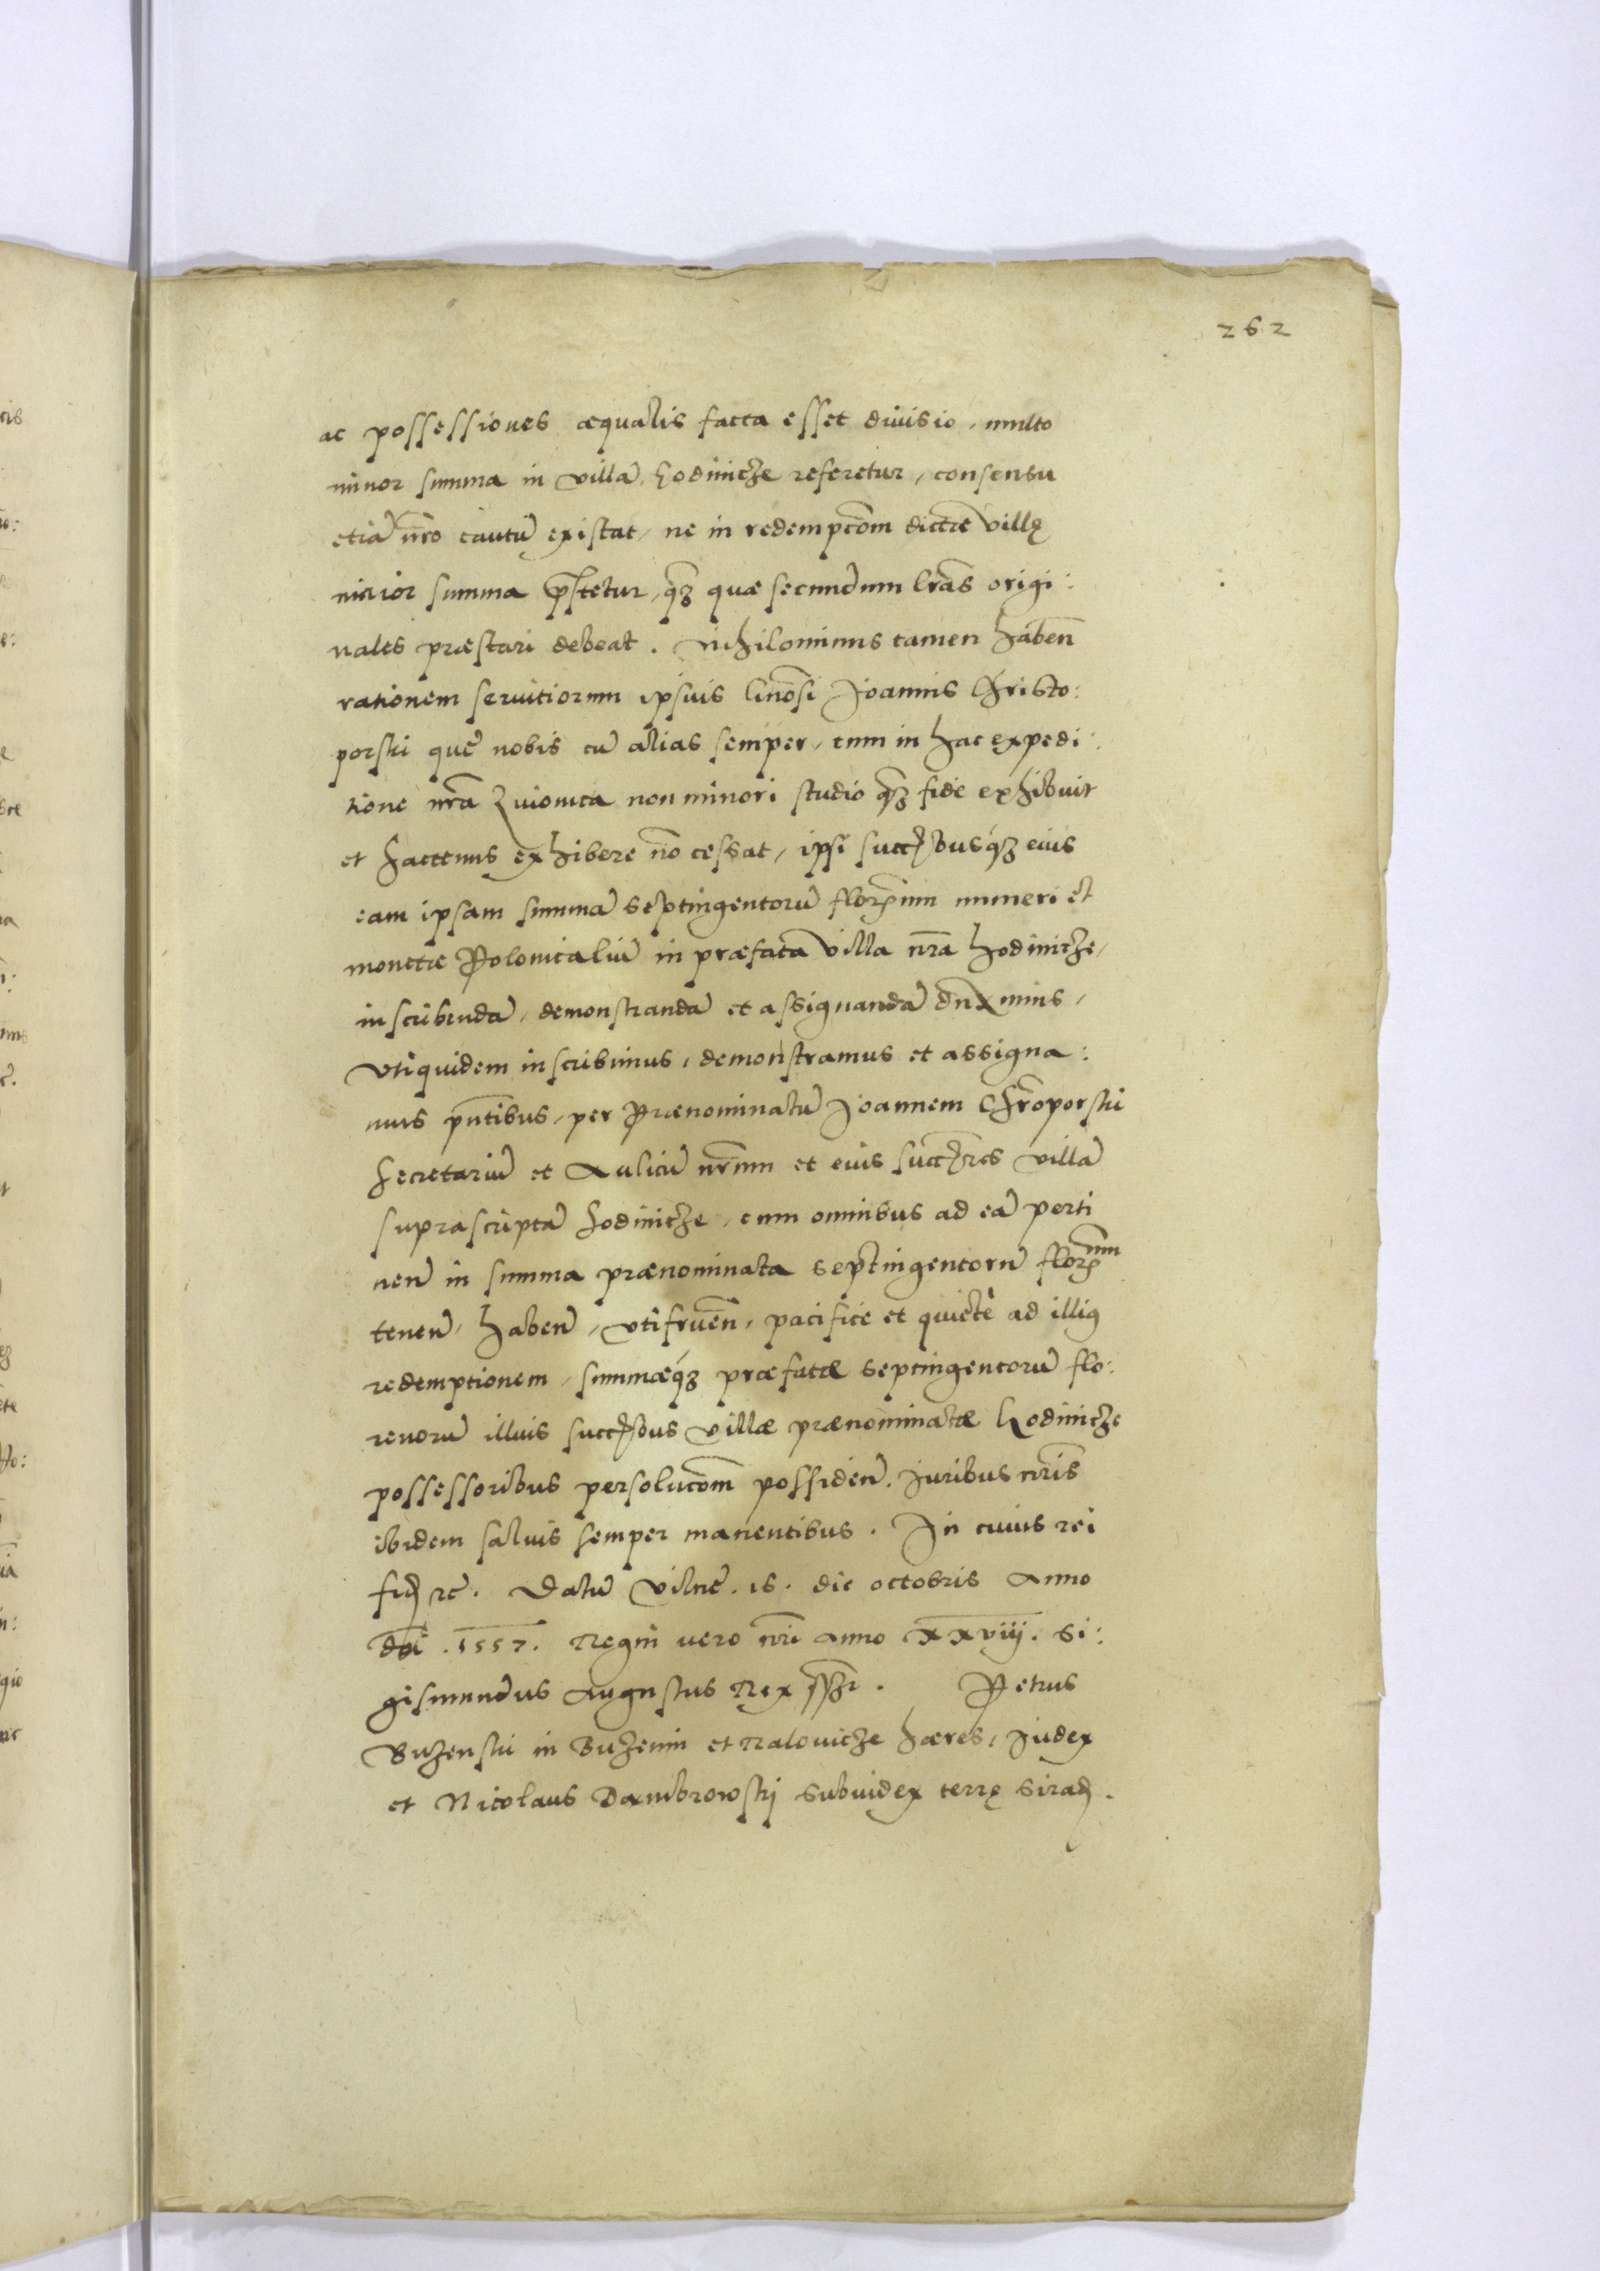 262
ac possessiones æqualis facta esset diuisio, multo
minor summa in villã Hodinicze referetur, consensu
etiã nr̃o cautũ existat, ne in redempcõm dictæ villę
maior summa p̃stetur, qȝ quæ secundum lr̃as origi:
nales præstari debeat. Nihilominus tamen habeñ
rationem seruitiorum ipsius Gñosi Joannis Christo:
porski quẽ nobis cũ alias semper, tum in hac expedi:
tione nr̃a Liuonica non minori studio qȝ fide exhibuit
et hactenus exhibere nõ cessat, ipsi succ̃ibusqȝ eius
eam ipsam summã septingentorũ florenum numeri et
monetæ Polonicaliũ in præfata villa nr̃a Hodinicze,
inscribendã, demonstrandã et assignandã duximus,
Vtiquidem inscribimus, demonstramus et assigna:
mus pñtibus, per Prænominatũ Joannem Chr̃oporski
Secretariũ et Aulicũ nr̃um et eius succ̃res villã
suprascriptã Hodinicze, cum omnibus ad eã perti
neñ in summa prænominata septingentorũ florenum
teneñ, habeñ, vtifrueñ, pacifice et quietè ad illiꝰ
redemptionem, summæqȝ præfatæ septingentorũ flo:
renorũ illius succ̃ibus villæ prænominatæ Hodinicze
possessoribus persolucõm possideñ. Juribus nr̃is
ibidem saluis semper manentibus. In cuius rei
fid̃ &c. Datũ Vilnę. 15. die octobris Anno
dñi .1557. Regni vero nr̃i Anno XXVIII. Si:
gismundus Augustus Rex sst. Petrus
Buzenski in Buzenin et Nalouicze hæres, Judex
et Nicolaus Dambrowski Subiudex terrę Sirad̃.